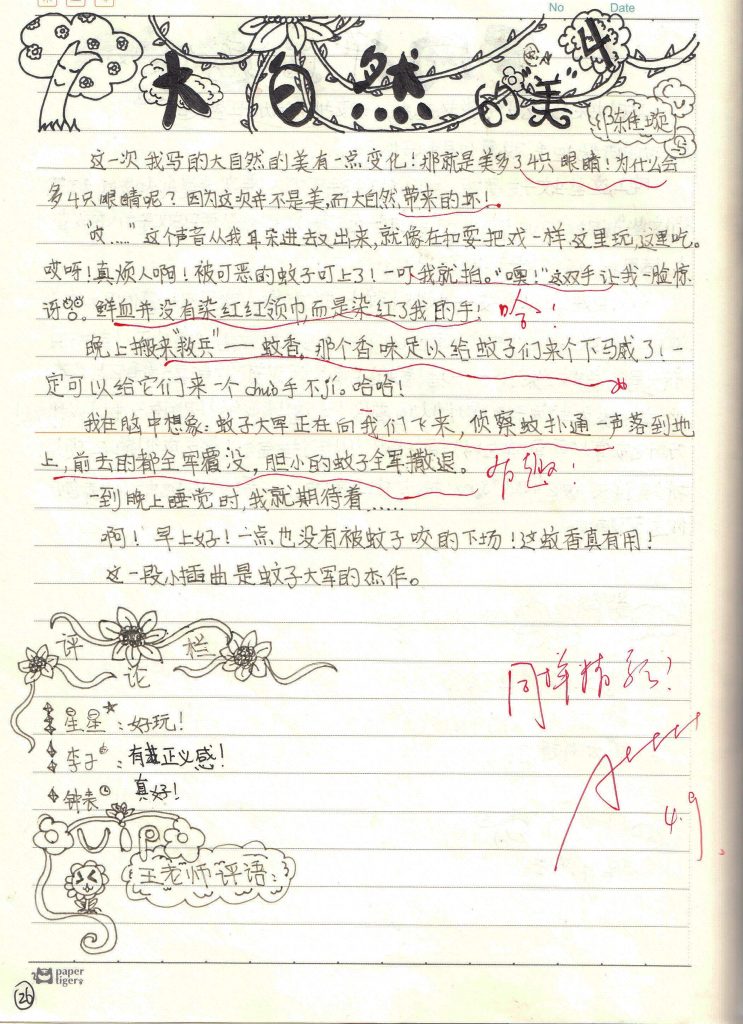 No Date
大自然的"美"4
陈佳璇
这一次我写的大自然的美有一点变化！那就是美多了4只眼睛！为什么会
多4只眼睛呢？因为这次并不是美，而大自然带来的坏！
"哎……"这个声音从我耳朵进去又出来，就像在扣耍把戏一样，这里玩，这里吃。
哎呀！真烦人啊！被可恶的蚊子叮上了！一叮我就拍。"噢！"这双手让我一脸惊
讶。鲜血并没有染红红领巾而是染红了我的手！
哈！
晚上搬来"救兵"——蚊香，那个香味足以给蚊子们来个下马威了！一
定可以给它们来一个chuò手不jí。哈哈！
我在脑中想象：蚊子大军正在向我们飞来，侦察蚊扑通一声落到地
上，前去的都全军覆没，胆小的蚊子全军撤退。
有趣！
一到晚上睡觉时，我就期待着……
啊！早上好！一点也没有被蚊子咬的下场！这蚊香真有用！
这一段小插曲是蚊子大军的杰作。
评论栏
星星：好玩！
李子：有正义感！
钟表 真好！
同样精彩！
4.9
VIP
王老师评语：
paper
tiger
26